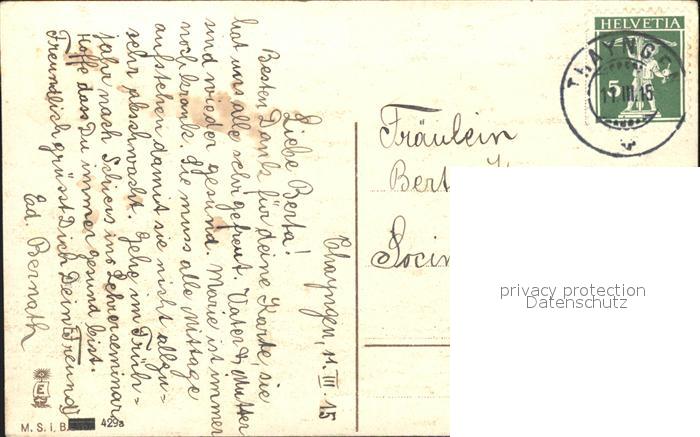 HELVETIA
THAYNGEN
5
11.III.15
Thayngen, 11. III 15
Liebe Berta!
Besten Dank für deine Karte, sie
hat uns alle sehr gefreut. Vater & Mutter
sind wieder gesund. Marie ist immer
noch krank. Sie muss alle Mittage
aufstehen damit sie nicht allzu=
sehr pleichwacht. Gehe im Früh=
jahr nach Schiers ins Lehrerseminar
Hoffe das Du immer gesund bist.
Freundlich grüsst Dich Dein Freund
Ed. Bernath
Fräulein
Bert
Socin
privacy protection
Datenschutz
M. S. i. B. 429a